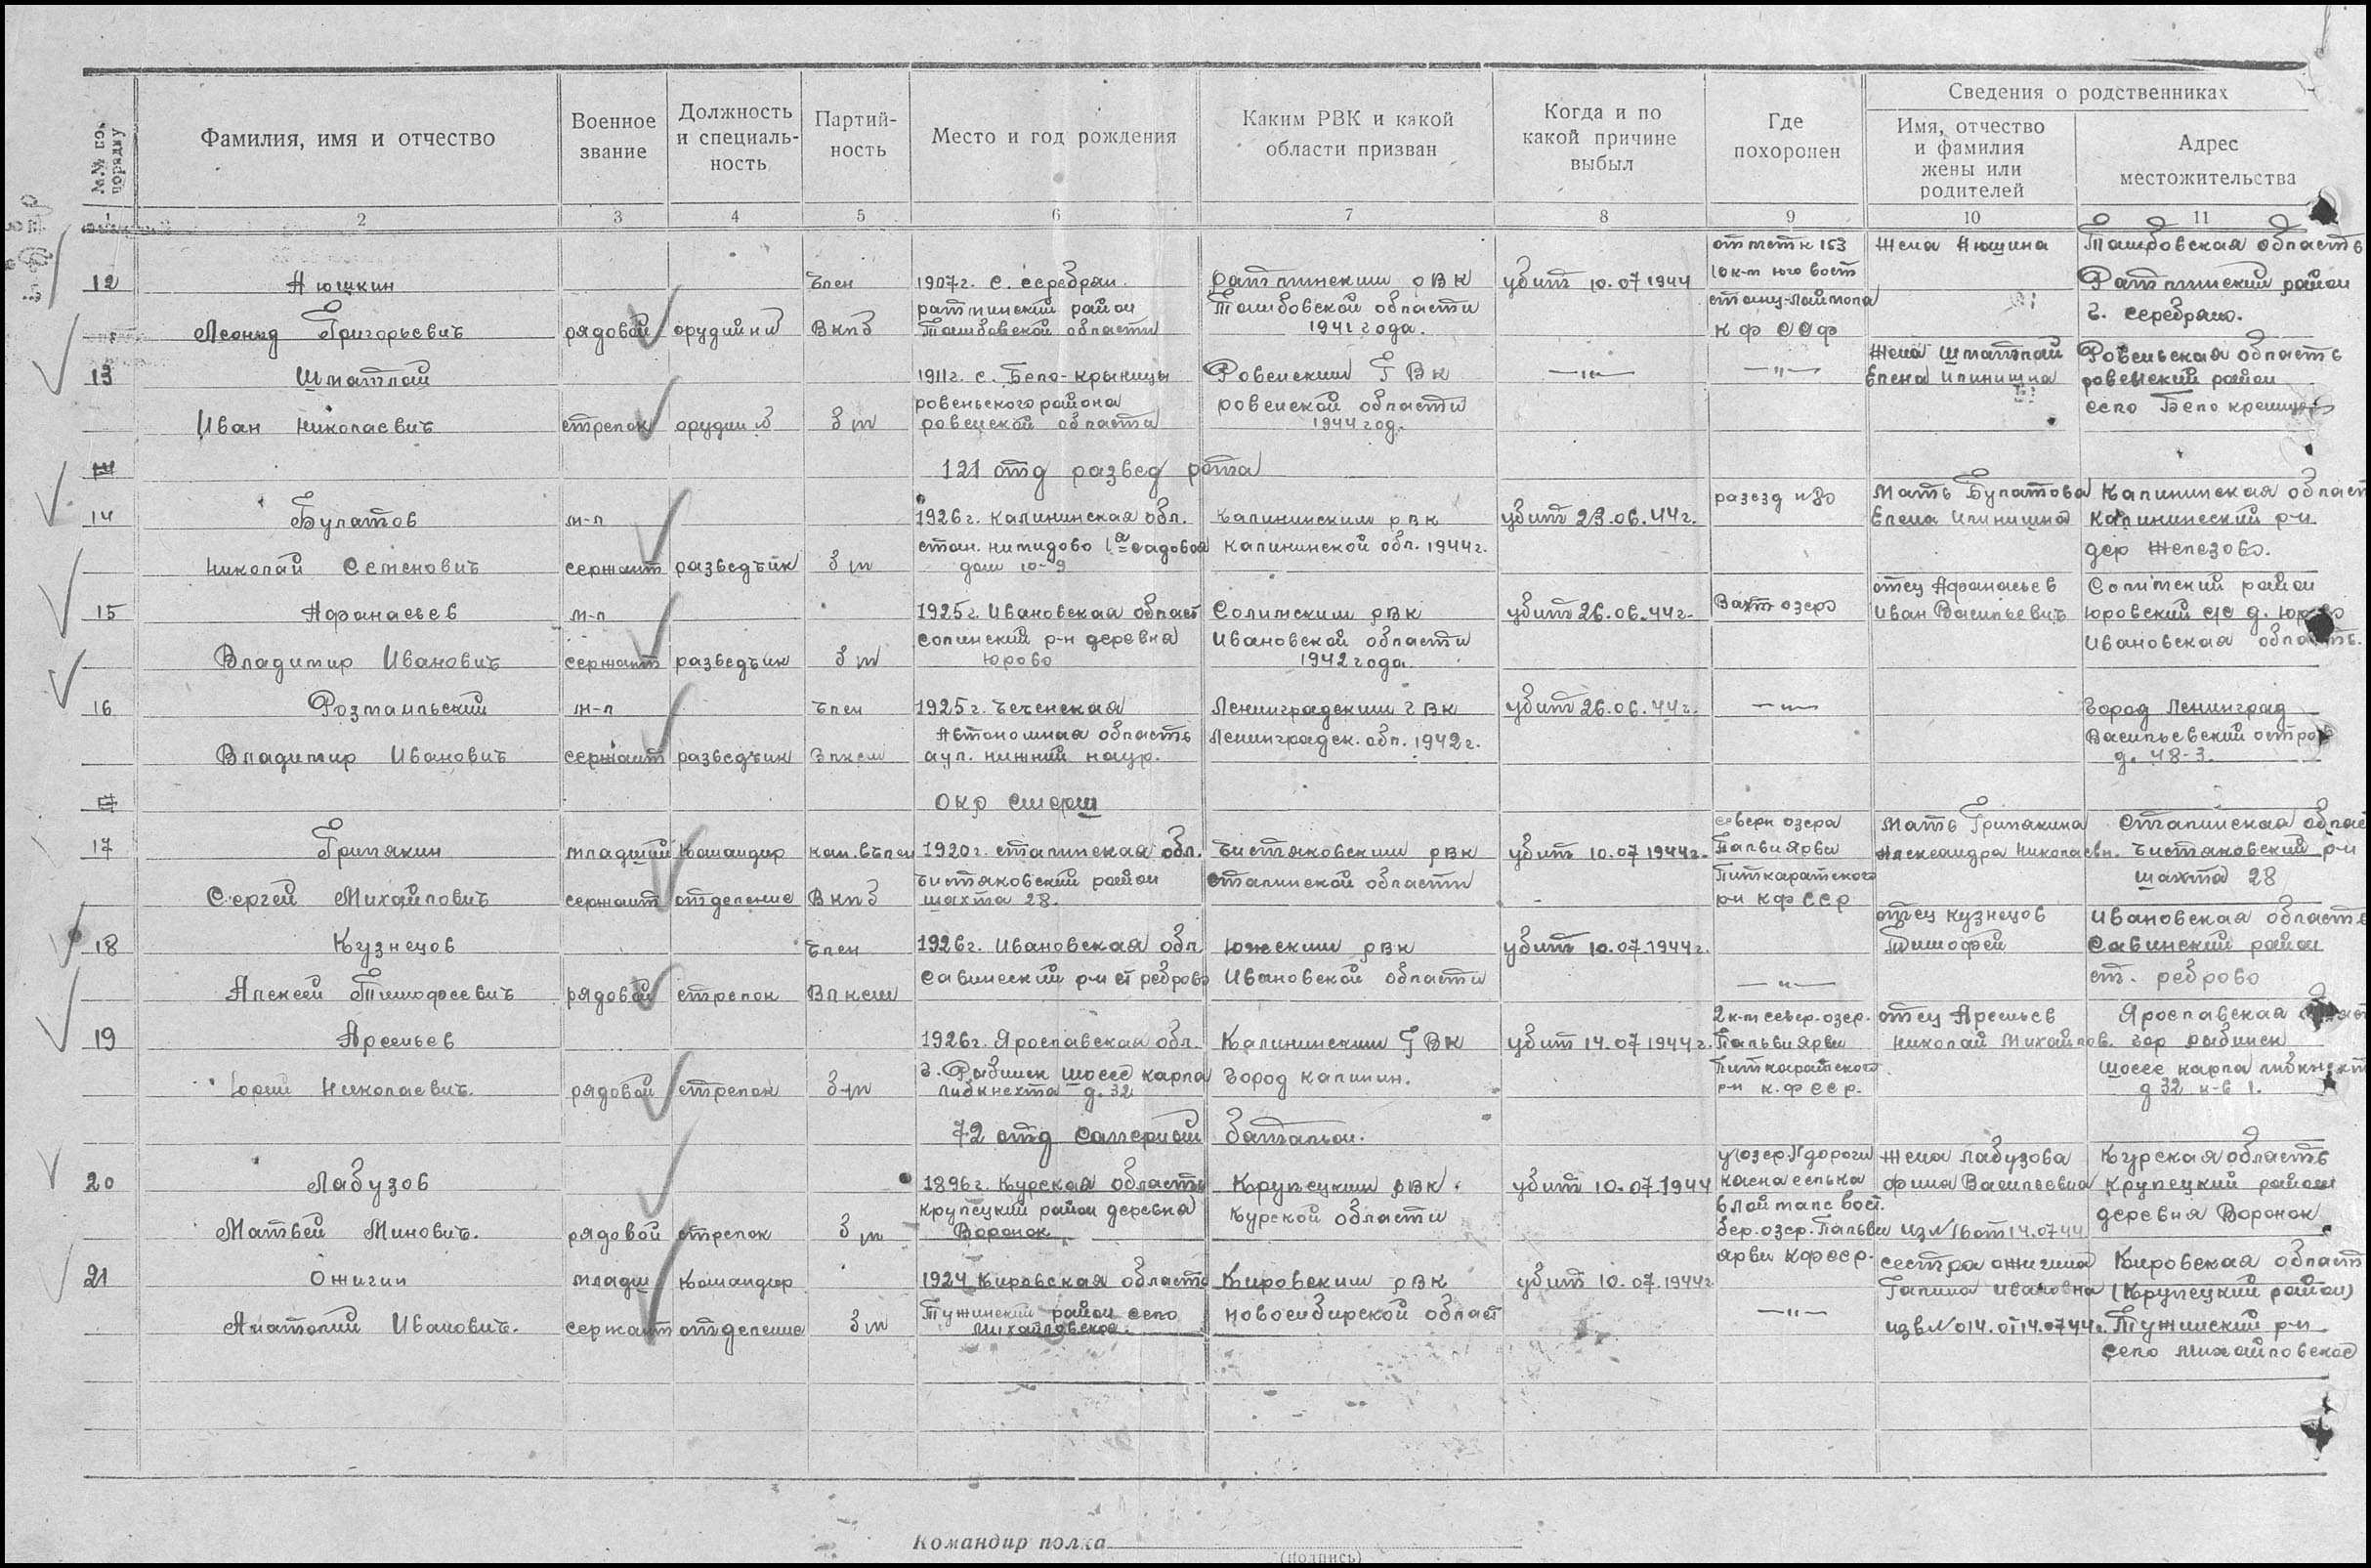 №№ по порядку
Фамилия, имя и отчество
Военное звание
Должность и специаль-ность
Партий-ность
Место и год рождения
Каким РВК и какой области призван
Когда и по какой причине выбыл
Где похоронен
Сведения о родственниках
Имя, отчество и фамилия жены или родителей
Адрес местожительства
1 2 3 4 5 6 7 8 9 10 11
отметк 153 Жена Анюшина Тамбовская область
12 Анюшкин Член 1907г. с. серебрян. ратминским рВК убит 10.07 1944 10 к-м юго вост Ратминский район
ратминский район Тамбовской области
Леонид Григорьевич рядовой орудийн Вкпб Тамбовской области 1941 года. к ф ССр с. серебрян.
Жена Шматлай Ровеньская область
13 Шматлай 1911г. с. Бело-крыницы Ровенским Г В К —"— —"— Елена Илинишна ровенский район
ровеньского района ровенской области село Бело
Иван Николаевич стрелок орудий б/п ровенской области 1944 год.
121 отд развед рота
разезд Мать Булатова Калининская област
14 Булатов м-л 1926г. калининская обл. калининским рвк убит 23.06.44г. Елена Илинишна Калининский р-н
1а садовая калининской обл. 1944г. дер Железово.
Николай Семенович сержант разведчик б/п дом 10-9
отец Афанасьев
15 Афанасьев м-л 1925г. Ивановская област убит 26.06.44г. озеро Иван Васильевич юровский с/с д. Юрово
р-н деревня Ивановской области Ивановская область.
Владимир Иванович сержант разведчик б/п юрово 1942 года
16 м-л Член 1925г. Чеченская Ленинградским г Вк убит 26.06.44г. —"— Город Ленинград
Автономная область Ленинградск. обл. 1942г. Васильевский остров
Владимир Иванович сержант разведчик Влксм аул. нижний наур. д. 48-3.
окр смерш
северн озера Мать Гримакина Сталинская област
17 Гримакин младший командир кан. в член 1920г. сталинская обл. Чистяковским рвк убит 10.07 1944г. Пальвиярви Александра Николаевн. Чистяковский р-н
Чистяковский район сталинской области Питкарамского шахта 28
Сергей Михайлович сержант отделение Вкпб шахта 28. р-н кфССр
отец Кузнецов Ивановская область
18 Кузнецов Член 1926г. Ивановская обл южским рвк убит 10.07.1944г. Тимофей Савинский район
Савинский р-н ст реброво Ивановской области ст. реброво
Алексей Тимофеевич рядовой стрелок Влксм —"—
2 к-м север. озер. отец Арсеньев Ярославская
19 Арсеньев 1926г. Ярославская обл. Калининским Г Вк убит 14.07 1944г. Пальвиярви Николай Михайлов. гор рыбинск
г. Рыбинск шоссе карла город калинин. Питкарамского шоссе карла либкнехт
Юрий Николаевич. рядовой стрелок б/п либкнехта д. 32 р-н к.ф ССр. д 32 к-в 1.
72 отд саперный батальон.
Жена Лабузова Курская область
20 Лабузов 1896г. Курская область Крупецким рвк. убит 10.07.1944 Васильевна крупецкий район
крупецкий район деревня Курской области деревня Воронок
Матвей Минович. рядовой стрелок б/п Воронок бер. озер. Пальви изв N 16 от 14.07.44
ярви кфССр. сестра Ожигина Кировская област
21 Ожигин младш командир 1924 Кировская область Кировским рвк убит 10.07.1944г Галина Ивановна (Крупецкий район)
Тужинский район село новосибирской област —"—
Анатолий Иванович. сержант отделение б/п михайловское. изв N 014. от 14.07.44г. Тужинский р-н
село михайловское
Командир полка
(подпись)